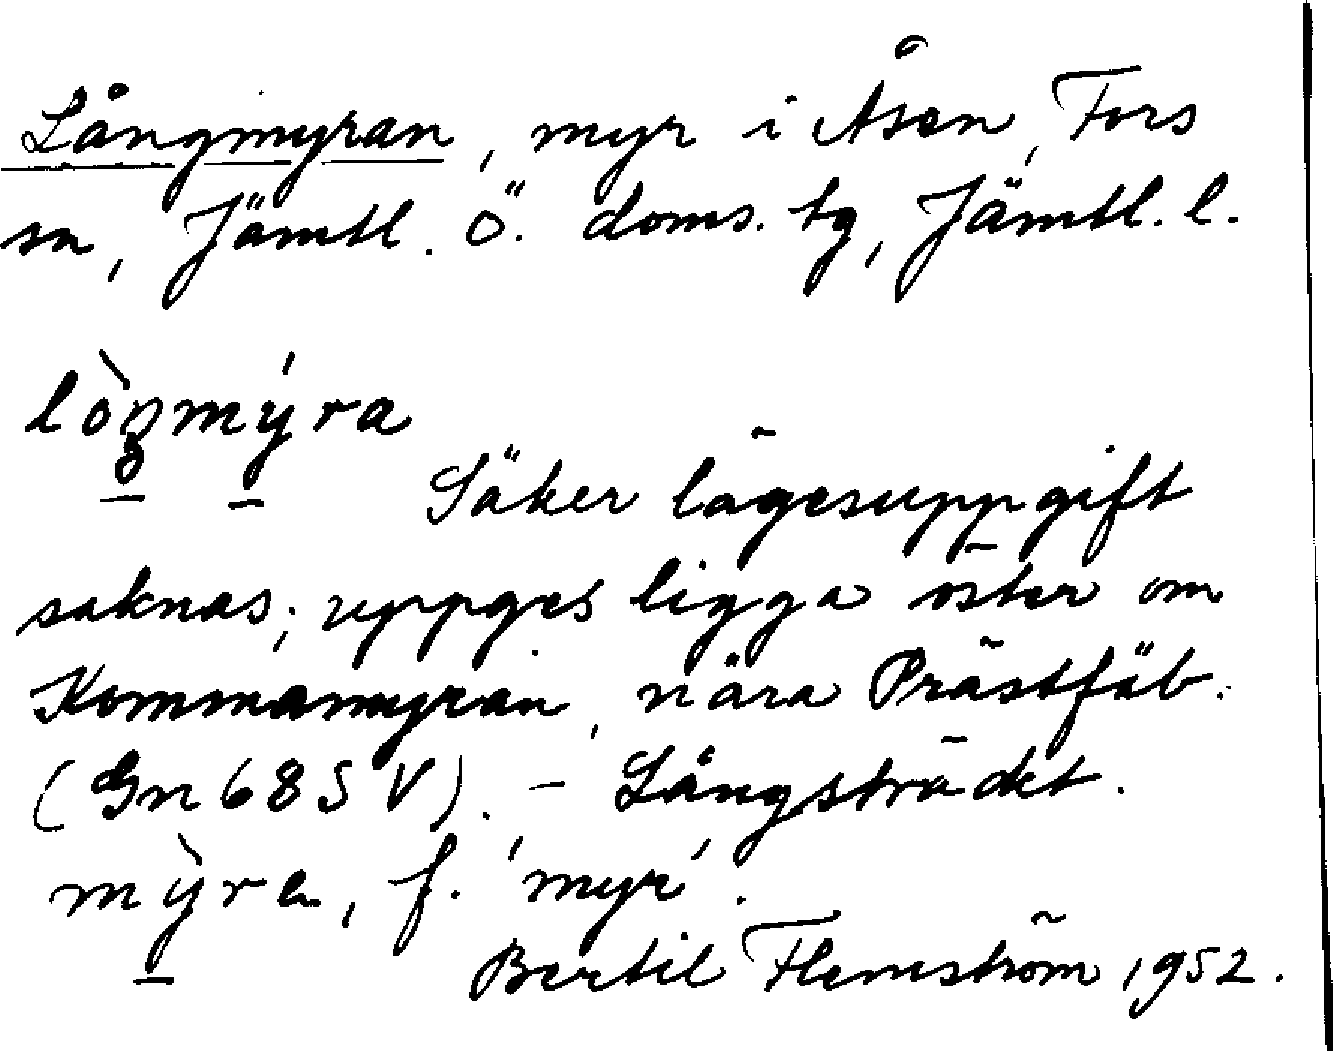 Långmyran, myr i Åsen, Fors
sn, Jämtl. ö. doms. tg, Jämtl. l.
lò̱ŋmý̱ra
Säker lägesuppgift
saknas; uppges ligga öster om
Kommamyran, nära Prästfäb.
(Gn 685 V). - Långsträckt.
mỳ̱ra, f. 'myr'.
Bertil Flemström 1952.